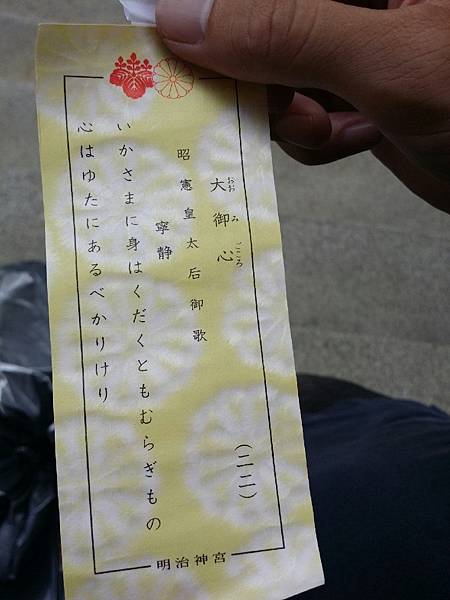 大御心
おお み ごころ
（二二）
昭憲皇太后御歌
寧静
いかさまに身はくだくともむらぎもの
心はゆたにあるべかりけり
明治神宮